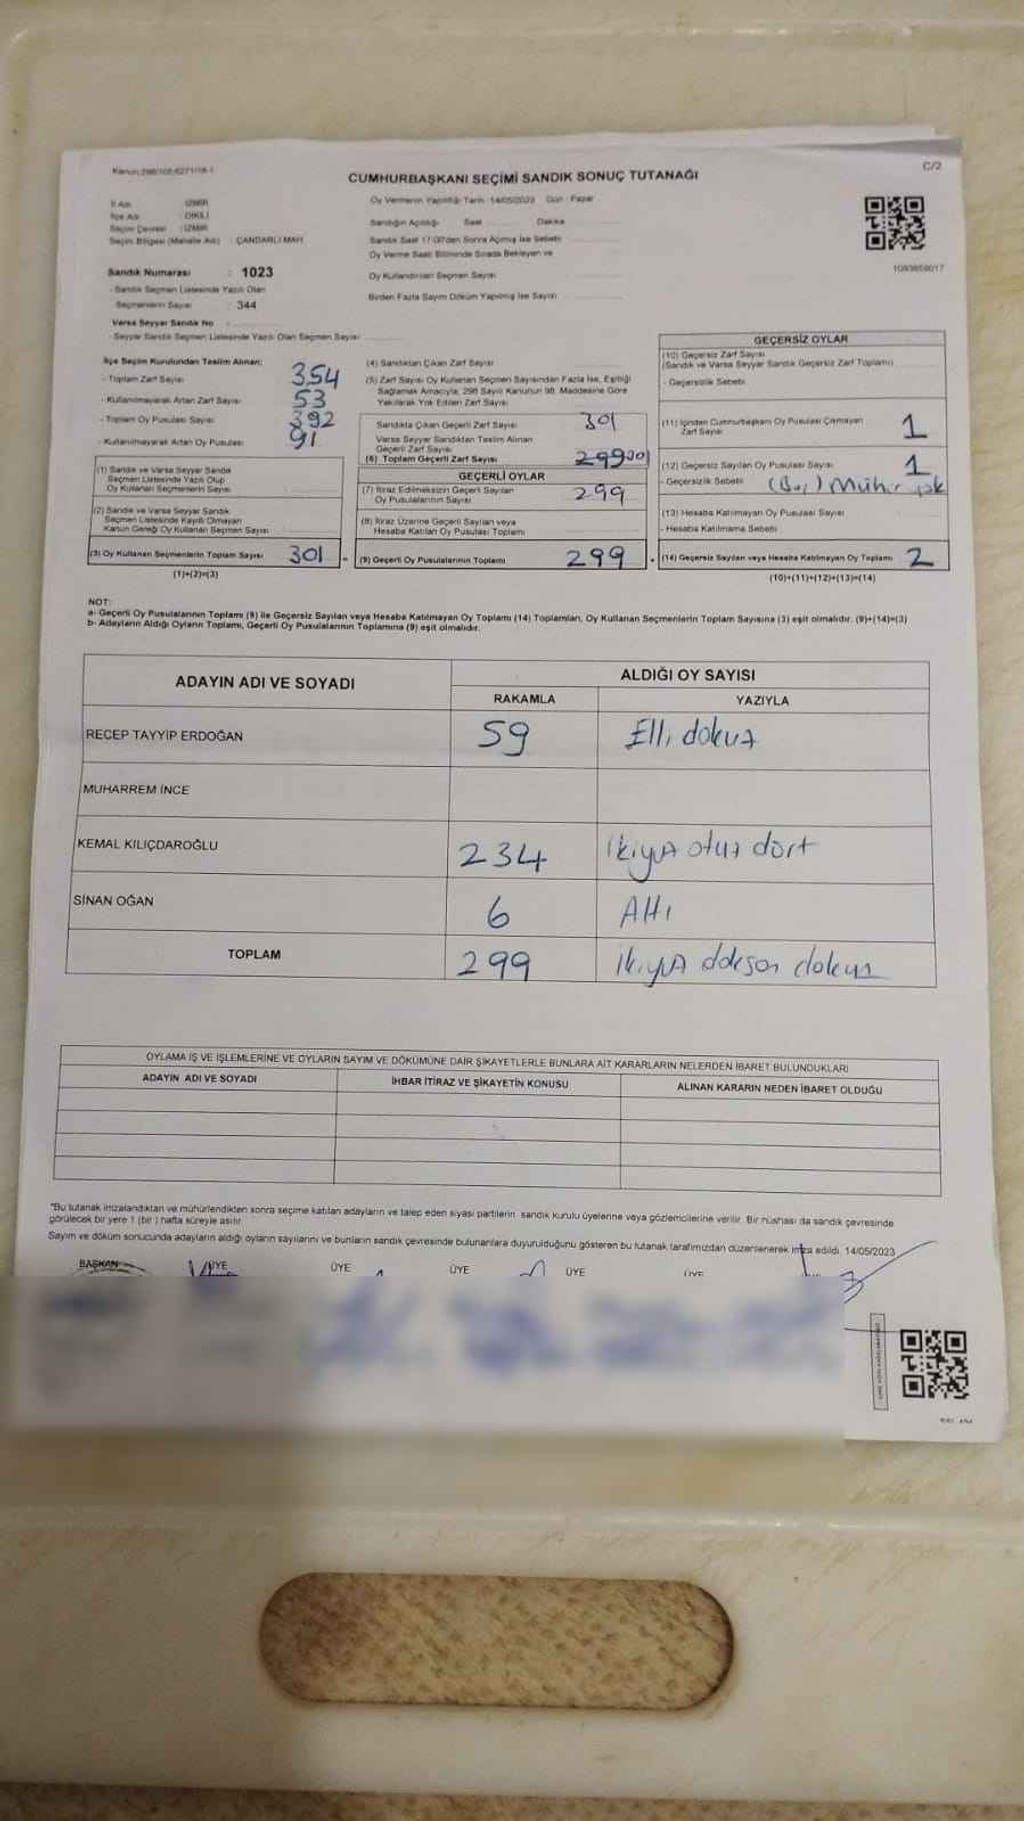 C/2
CUMHURBAŞKANI SEÇİMİ SANDIK SONUÇ TUTANAĞI
İl Adı : İZMİR
İlçe Adı : DİKİLİ
Seçim Çevresi : İZMİR
Seçim Bölgesi (Mahalle Adı) : ÇANDARLI MAH.
Sandık Numarası : 1023
- Sandık Seçmen Listesinde Yazılı Olan
Seçmenlerin Sayısı : 344
Varsa Seyyar Sandık No :
- Seyyar Sandık Seçmen Listesinde Yazılı Olan Seçmen Sayısı :
Oy Vermenin Yapıldığı Tarih :14/05/2023 Gün : Pazar
Sandığın Açıldığı Saat Dakika
Sandık Saat 17:00'den Sonra Açılmış İse Sebebi
Oy Verme Saati Bitiminde Sırada Bekleyen ve
Oy Kullandırılan Seçmen Sayısı
Birden Fazla Sayım Döküm Yapılmış İse Sayısı
1093859017
İlçe Seçim Kurulundan Teslim Alınan:
- Toplam Zarf Sayısı 354
- Kullanılmayarak Artan Zarf Sayısı 53
- Toplam Oy Pusulası Sayısı 392
- Kullanılmayarak Artan Oy Pusulası 91
(1) Sandık ve Varsa Seyyar Sandık
Seçmen Listesinde Yazılı Olup
Oy Kullanan Seçmenlerin Sayısı
(2) Sandık ve Varsa Seyyar Sandık
Seçmen Listesinde Kayıtlı Olmayan
Kanun Gereği Oy Kullanan Seçmen Sayısı
(3) Oy Kullanan Seçmenlerin Toplam Sayısı 301
(1)+(2)=(3)
(4) Sandıktan Çıkan Zarf Sayısı
(5) Zarf Sayısı Oy Kullanan Seçmen Sayısından Fazla İse, Eşitliği
Sağlamak Amacıyla, 298 Sayılı Kanunun 98. Maddesine Göre
Yakılarak Yok Edilen Zarf Sayısı
Sandıkta Çıkan Geçerli Zarf Sayısı 301
Varsa Seyyar Sandıktan Teslim Alınan
Geçerli Zarf Sayısı
(6) Toplam Geçerli Zarf Sayısı
GEÇERLİ OYLAR
(7) İtiraz Edilmeksizin Geçerli Sayılan
Oy Pusulalarının Sayısı 299
(8) İtiraz Üzerine Geçerli Sayılan veya
Hesaba Katılan Oy Pusulası Toplamı
(9) Geçerli Oy Pusulalarının Toplamı 299
GEÇERSİZ OYLAR
(10) Geçersiz Zarf Sayısı
(Sandık ve Varsa Seyyar Sandık Geçersiz Zarf Toplamı)
- Geçersizlik Sebebi
(11) İçinden Cumhurbaşkanı Oy Pusulası Çıkmayan
Zarf Sayısı 1
(12) Geçersiz Sayılan Oy Pusulası Sayısı 1
- Geçersizlik Sebebi (Boş) Mühür yok
(13) Hesaba Katılmayan Oy Pusulası Sayısı
- Hesaba Katılmama Sebebi
(14) Geçersiz Sayılan veya Hesaba Katılmayan Oy Toplamı 2
(10)+(11)+(12)+(13)=(14)
NOT:
a- Geçerli Oy Pusulalarının Toplamı (9) ile Geçersiz Sayılan veya Hesaba Katılmayan Oy Toplamı (14) Toplamları, Oy Kullanan Seçmenlerin Toplam Sayısına (3) eşit olmalıdır. (9)+(14)=(3)
b- Adayların Aldığı Oyların Toplamı, Geçerli Oy Pusulalarının Toplamına (9) eşit olmalıdır.
ADAYIN ADI VE SOYADI ALDIĞI OY SAYISI
RAKAMLA YAZIYLA
RECEP TAYYİP ERDOĞAN 59 Elli dokuz
MUHARREM İNCE
KEMAL KILIÇDAROĞLU 234 ikiyüz otuz dört
SİNAN OĞAN 6 Altı
TOPLAM 299 ikiyüz doksan dokuz
OYLAMA İŞ VE İŞLEMLERİNE VE OYLARIN SAYIM VE DÖKÜMÜNE DAİR ŞİKAYETLERLE BUNLARA AİT KARARLARIN NELERDEN İBARET BULUNDUKLARI
ADAYIN ADI VE SOYADI İHBAR İTİRAZ VE ŞİKAYETİN KONUSU ALINAN KARARIN NEDEN İBARET OLDUĞU
*Bu tutanak imzalandıktan ve mühürlendikten sonra seçime katılan adayların ve talep eden siyasi partilerin sandık kurulu üyelerine veya gözlemcilerine verilir. Bir nüshası da sandık çevresinde
görülecek bir yere 1 (bir) hafta süreyle asılır.
Sayım ve döküm sonucunda adayların aldığı oyların sayılarını ve bunların sandık çevresinde bulunanlara duyurulduğunu gösteren bu tutanak tarafımızdan düzenlenerek imza edildi. 14/05/2023
BAŞKAN ÜYE ÜYE ÜYE ÜYE ÜYE